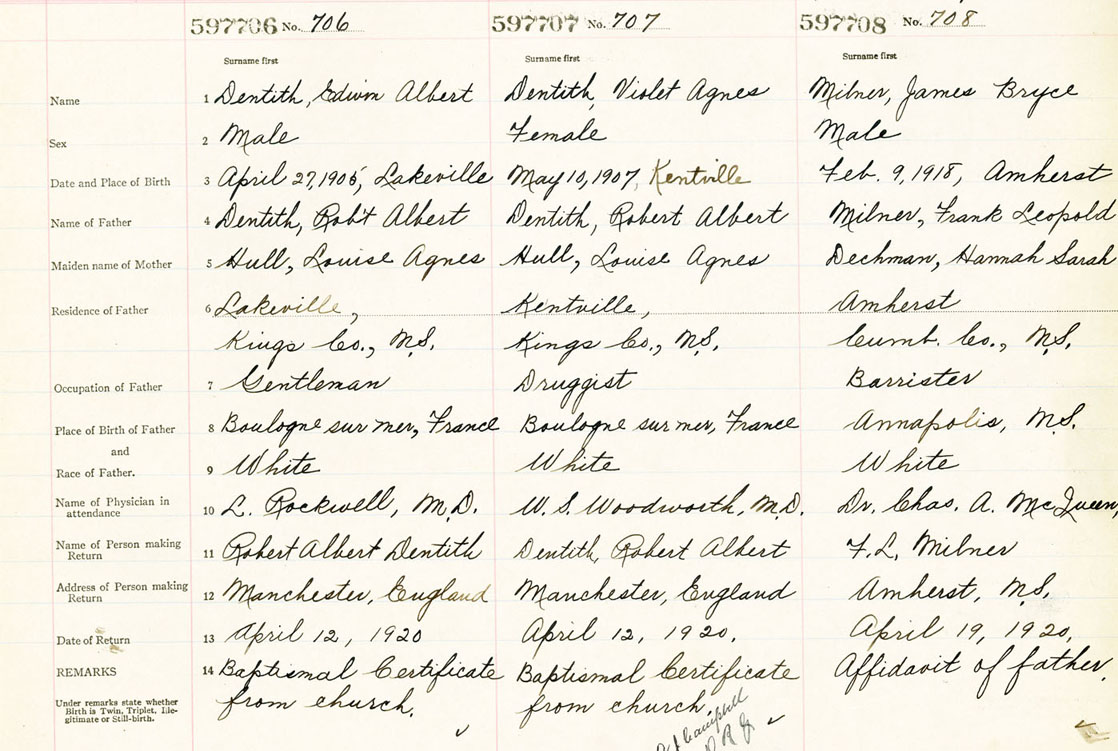 597706 No. 706 597707 No. 707 597708 No. 708
Surname first Surname first Surname first
Name 1 Dentith, Edwin Albert Dentith, Violet Agnes Milner, James Bryce
Sex 2 Male Female Male
Date and Place of Birth 3 April 27, 1905, Lakeville May 10, 1907, Kentville Feb. 9, 1918, Amherst
Name of Father 4 Dentith, Rob't Albert Dentith, Robert Albert Milner, Frank Leopold
Maiden name of Mother 5 Hull, Louise Agnes Hull, Louise Agnes Dechman, Hannah Sarah
Residence of Father 6 Lakeville, Kentville, Amherst
Kings Co., N.S. Kings Co., N.S. Cumb. Co., N.S.
Occupation of Father 7 Gentleman Druggist Barrister
Place of Birth of Father 8 Boulogne sur mer, France Boulogne sur mer, France Annapolis, N.S.
and
Race of Father. 9 White White White
Name of Physician in
attendance 10 L. Rockwell, M.D. W. S. Woodworth, M.D. Dr. Chas. A. McQueen,
Name of Person making
Return 11 Robert Albert Dentith Dentith, Robert Albert F. L. Milner
Address of Person making
Return 12 Manchester, England Manchester, England Amherst, N.S.
Date of Return 13 April 12, 1920 April 12, 1920. April 19, 1920.
REMARKS 14 Baptismal Certificate Baptismal Certificate Affidavit of father.
from church. from church.
Under remarks state whether
Birth is Twin, Triplet, Ille-
gitimate or Still-birth.
Campbell